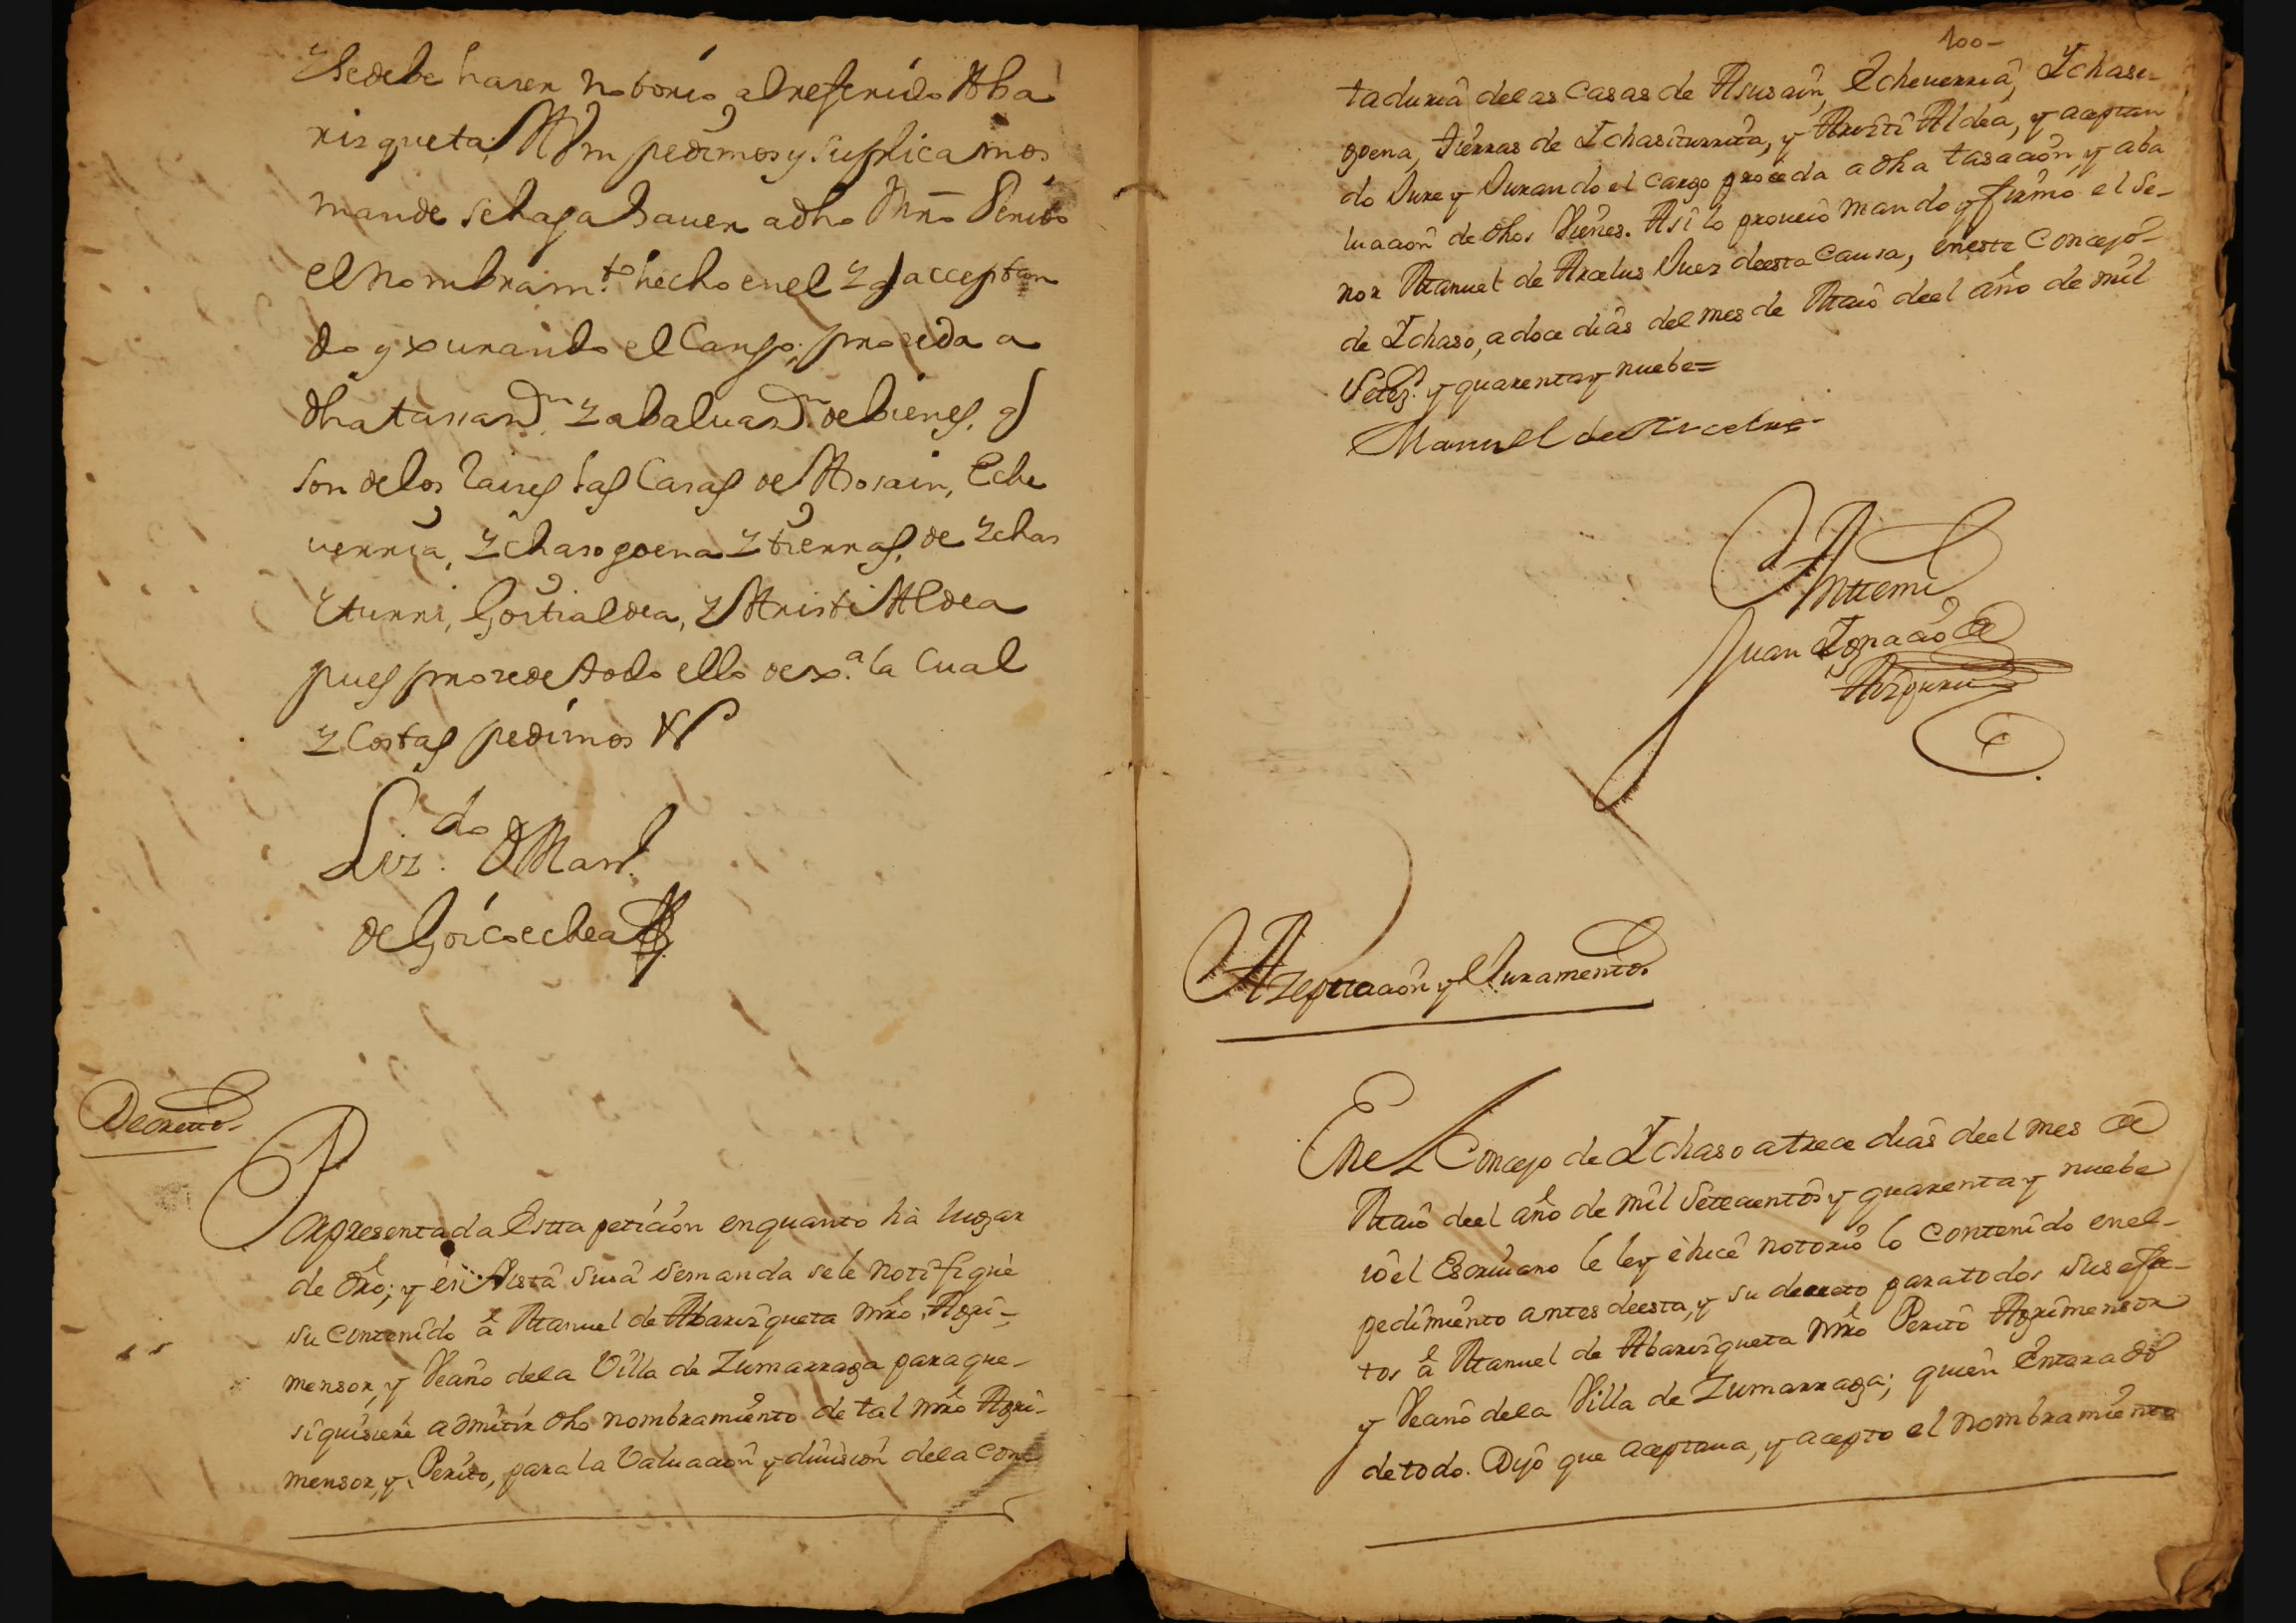 Y se debe haser notorio al referido Aba
risqueta; A Vm pedimos y suplicamos
mande se haga sauer a dho Mro Perito
el nombram.to hecho en el y q acceptan
do y xurando el Cargo, proceda a
dha tasasn y abaluasn de bienes, q
son de los raises las Casas de Asosain, Eche
uerria, Ychasogoena y tierras, de Ychas
Yturri, Gostialdea, y Aristi Aldea
pues prozede todo ello de x.a la cual
y Costas pedimos &
Liz.do D Man.l
de Goicoechea
Decretto.
Rapresentada Estta petiçión en quanto há lugar
de dro; y en Vista su sa demanda se le notifiqué
su contenido á Manuel de Abarisqueta Mro Agri-
mensor, y Veçino de la Villa de Zumarraga para que
si quisiere admitir dho nombramiento de tal Mro Agri-
mensor, y Perito, para la Valuaçión y diuisión de la Con
100-
taduria de las Casas de Asusain, Echeuerria, Ychaso
goena, tierras de Ychasiturrita, y Arizti Aldea, y aceptan
do Jure y Jurando el cargo proceda a dha tasaçión y aba
luaçión de dhos Vienes. Así lo proueió mandó y firmó el Se-
ñor Manuel de Arcelus Juez de esta Causa, en este Concejo
de Ychaso, a doce días del mes de Maio de el año de mil
Setez.s y quarenta y nuebe=
Manuel de Arcelus
Anttemi
Juan Ygnacio de
Aizpuru
Azepttaçión y Juramento.
En el Concejo de Ychaso a treçe días de el mes de
Maio de el año de mil Seteçientos y quarenta y nuebe
io el Escriuano le ley é hiçe notorio lo contenido en el
pedimiento antes de esta, y su decreto para todos sus efe-
tos á Manuel de Abarisqueta Mro Perito Agrimensor
y Veçino de la Villa de Zumarraga; quien Enterado
de todo. Dijo que aceptaua, y acepto el nombramiento